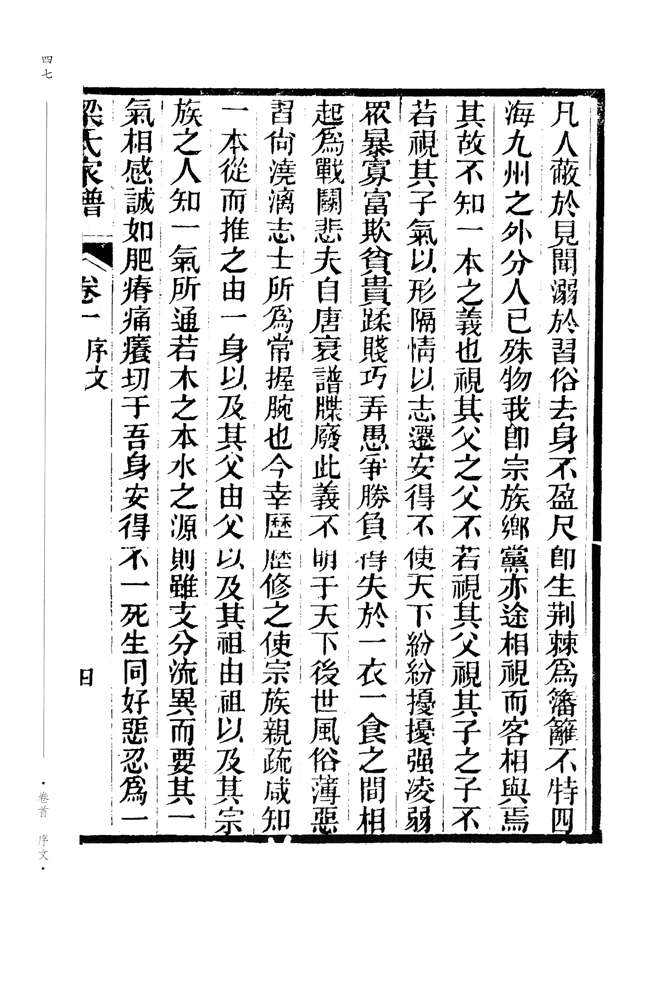 凡人蔽於見聞溺於習俗去身不盈尺卽生荆棘爲籓籬不特四
海九州之外分人已殊物我卽宗族鄉黨亦途相視而客相與焉
其故不知一本之義也視其父之父不若視其父視其子之子不
若視其子氣以形隔情以志遷安得不使天下紛紛擾擾强凌弱
眾暴寡富欺貧貴蹂賤巧弄愚爭勝負得失於一衣一食之間相
起爲戰鬭悲夫自唐衰譜牒廢此義不明于天下後世風俗薄惡
習尙澆漓志士所爲常握腕也今幸歷歷修之使宗族親疏咸知
一本從而推之由一身以及其父由父以及其祖由祖以及其宗
族之人知一氣所通若木之本水之源則雖支分流異而要其一
氣相感誠如肥瘠痛癢切于吾身安得不一死生同好惡忍爲一
梁氏家譜 卷一 序文 四
四七
·卷首 序文·